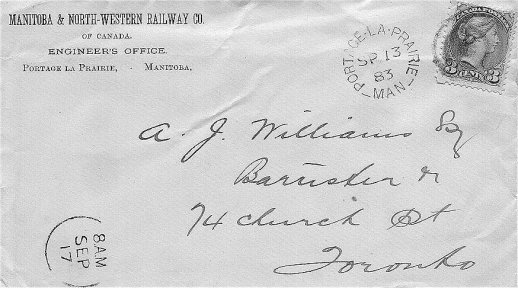 MANITOBA & NORTH-WESTERN RAILWAY CO.
OF CANADA.
ENGINEER'S OFFICE.
PORTAGE LA PRAIRIE, - MANITOBA,
PORTAGE-LA-PRAIRIE
SP 13
83
MAN
3 CENTS 3
A. J. Williams Esq
Barrister &
74 Church St
Toronto
8AM
SEP
17